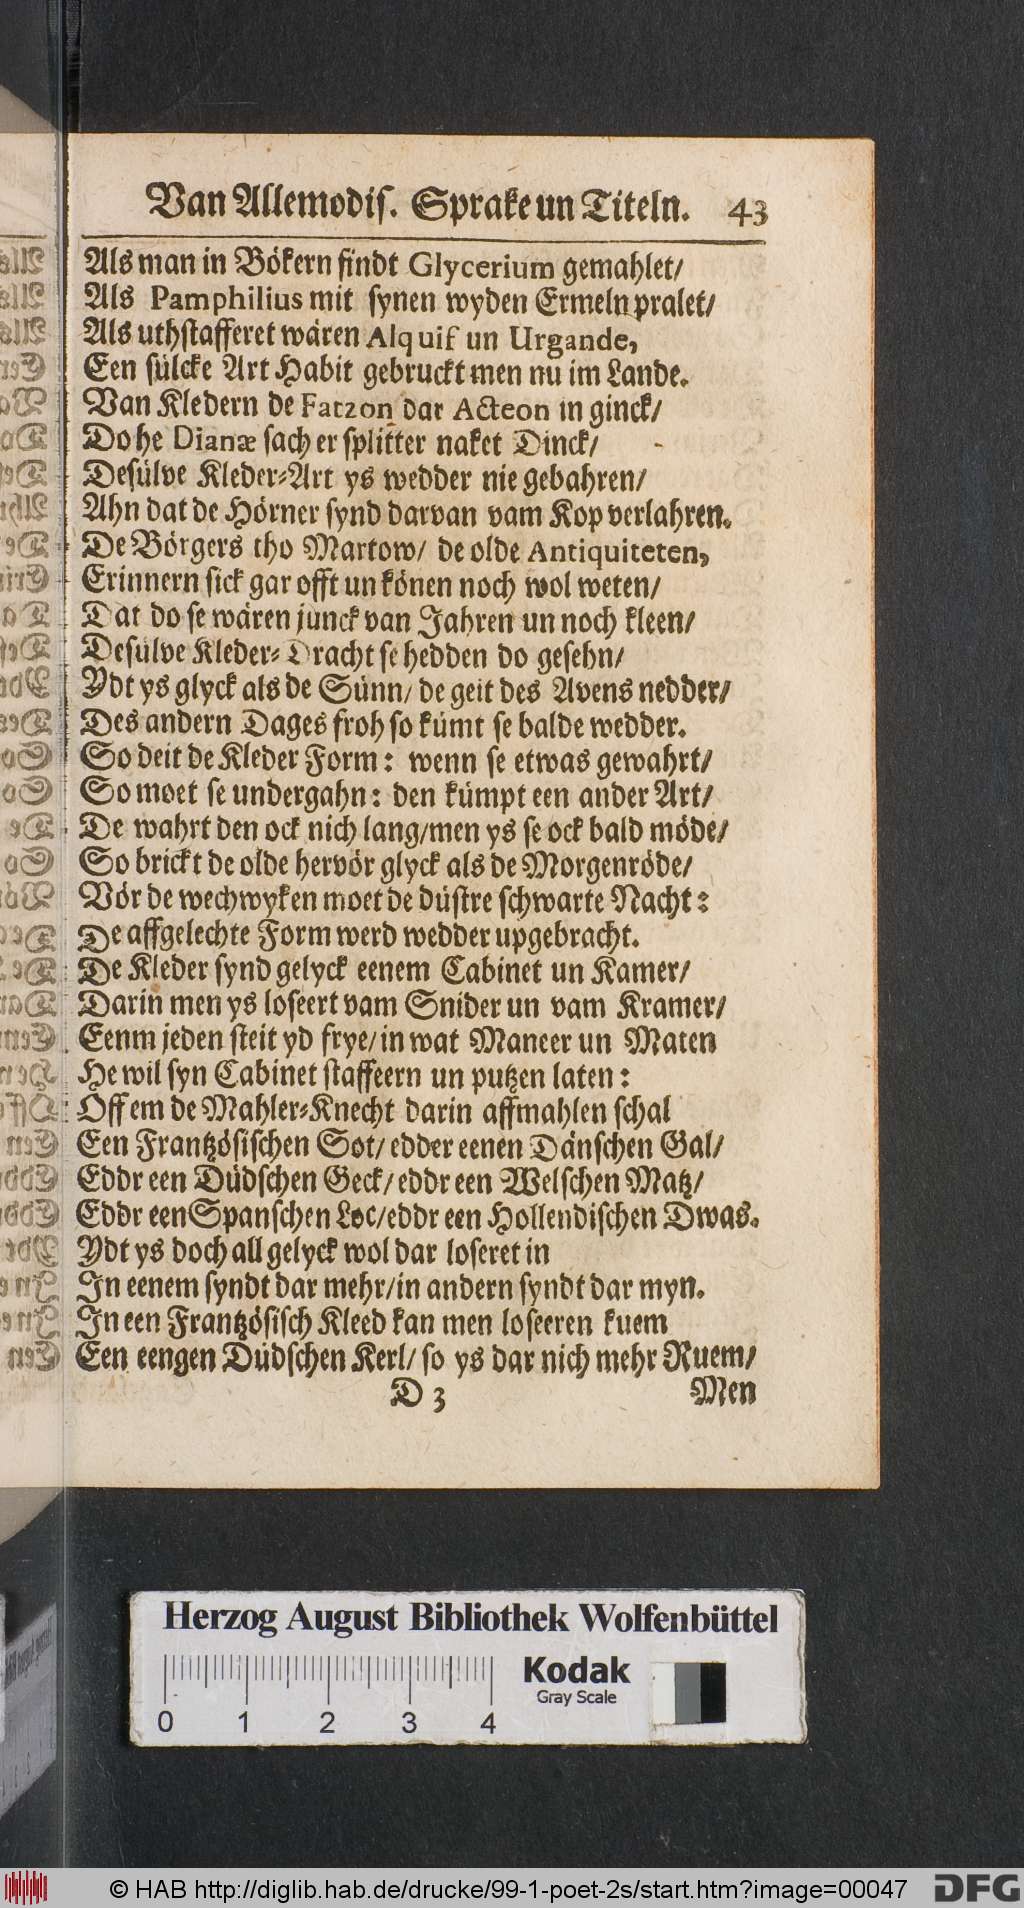 Van Allemodis. Sprake un Titeln. 43
Als man in Bökern findt Glycerium gemahlet/
Als Pamphilius mit synen wyden Ermeln pralet/
Als uthstafferet wären Alquif un Urgande,
Een sülcke Art Habit gebruckt men nu im Lande.
Van Kledern de Fatzon dar Acteon in ginck/
Do he Dianæ sach er splitter naket Dinck/
Desülve Kleder-Art ys wedder nie gebahren/
Ahn dat de Hörner synd darvan vam Kop verlahren.
De Börgers tho Martow/ de olde Antiquiteten,
Erinnern sick gar offt un könen noch wol weten/
Dat do se wären junck van Jahren un noch kleen/
Desülve Kleder-Dracht se hedden do gesehn/
Ydt ys glyck als de Sünn/ de geit des Avens nedder/
Des andern Dages froh so kümt se balde wedder.
So deit de Kleder Form: wenn se etwas gewahrt/
So moet se undergahn: den kümpt een ander Art/
De wahrt den ock nich lang/men ys se ock bald möde/
So brickt de olde hervör glyck als de Morgenröde/
Vör de wechwyken moet de düstre schwarte Nacht:
De affgelechte Form werd wedder upgebracht.
De Kleder synd gelyck eenem Cabinet un Kamer/
Darin men ys loseert vam Snider un vam Kramer/
Eenm jeden steit yd frye/in wat Maneer un Maten
He wil syn Cabinet staffeern un putzen laten:
Öff em de Mahler-Knecht darin affmahlen schal
Een Frantzösischen Sot/ edder eenen Dänschen Gal/
Eddr een Düdschen Geck/eddr een Welschen Matz/
Eddr een Spanschen Loc/eddr een Hollendischen Dwas.
Ydt ys doch all gelyck wol dar loseret in
In eenem syndt dar mehr/in andern syndt dar myn.
In een Frantzösisch Kleed kan men loseeren kuem
Een eengen Düdschen Kerl/ so ys dar nich mehr Ruem/
D 3 Men
Herzog August Bibliothek Wolfenbüttel
Kodak
Gray Scale
0 1 2 3 4
© HAB http://diglib.hab.de/drucke/99-1-poet-2s/start.htm?image=00047 DFG